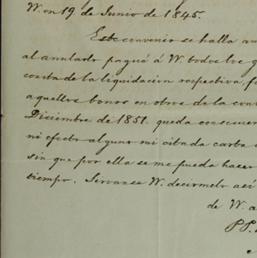 W. en 19 de Junio de 1845.
Este convenio se halla
al anularlo pagué á W. todo lo
cuenta de la liquidacion respectiva
aquellos bonos en otros de la
Diciembre de 1851. queda
ni efecto alguno mi citada carta
sin que por ella se me pueda hacer
tiempo. Sirvanse W. decirmelo así
de W. a
PP.